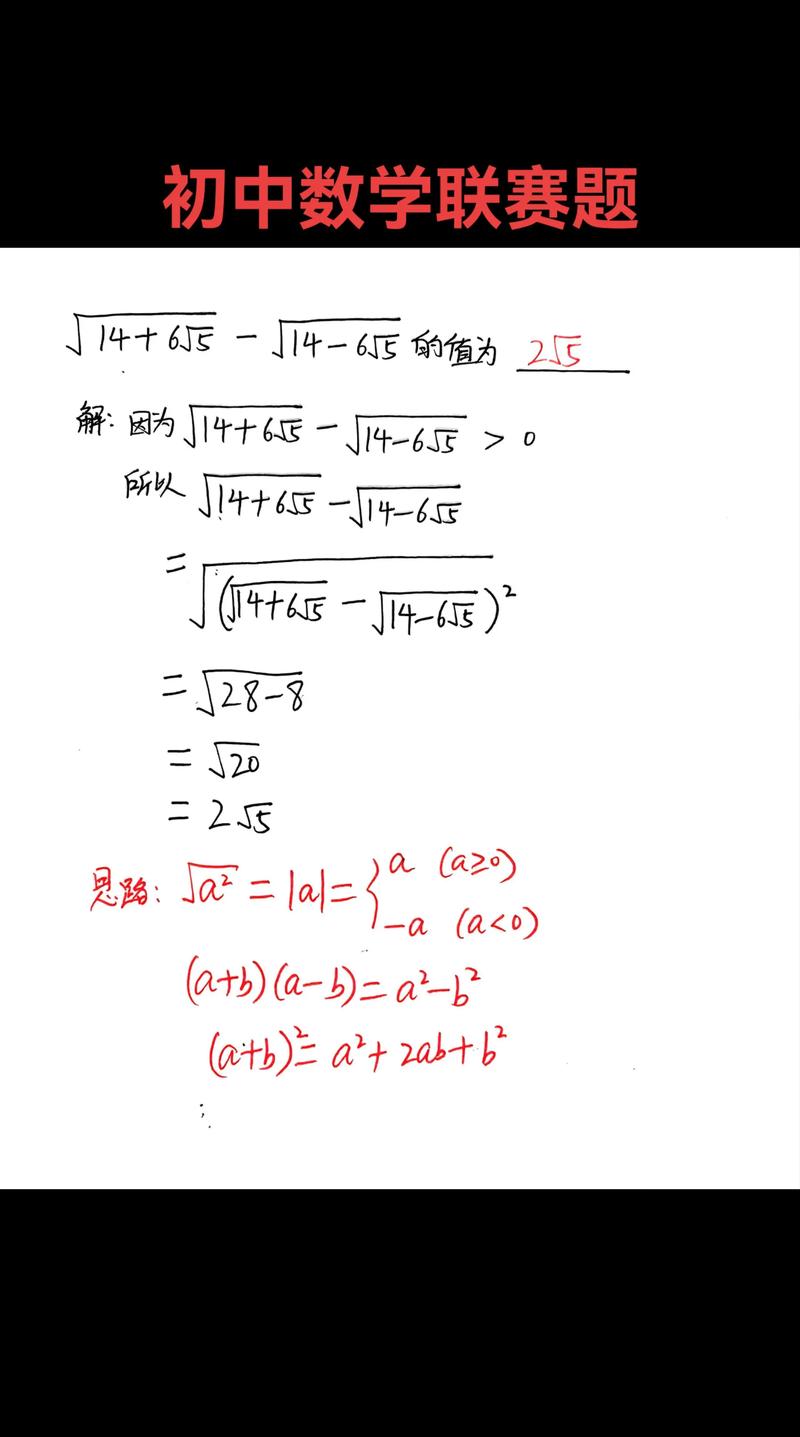 初中数学联赛题
√(14+6√5) - √(14-6√5) 的值为 2√5
解: 因为 √(14+6√5) - √(14-6√5) > 0
所以 √(14+6√5) - √(14-6√5)
= √((√(14+6√5) - √(14-6√5))²)
= √(28-8)
= √20
= 2√5
思路: √a² = |a| = { a (a≥0)
-a (a<0)
(a+b)(a-b) = a²-b²
(a+b)² = a²+2ab+b²